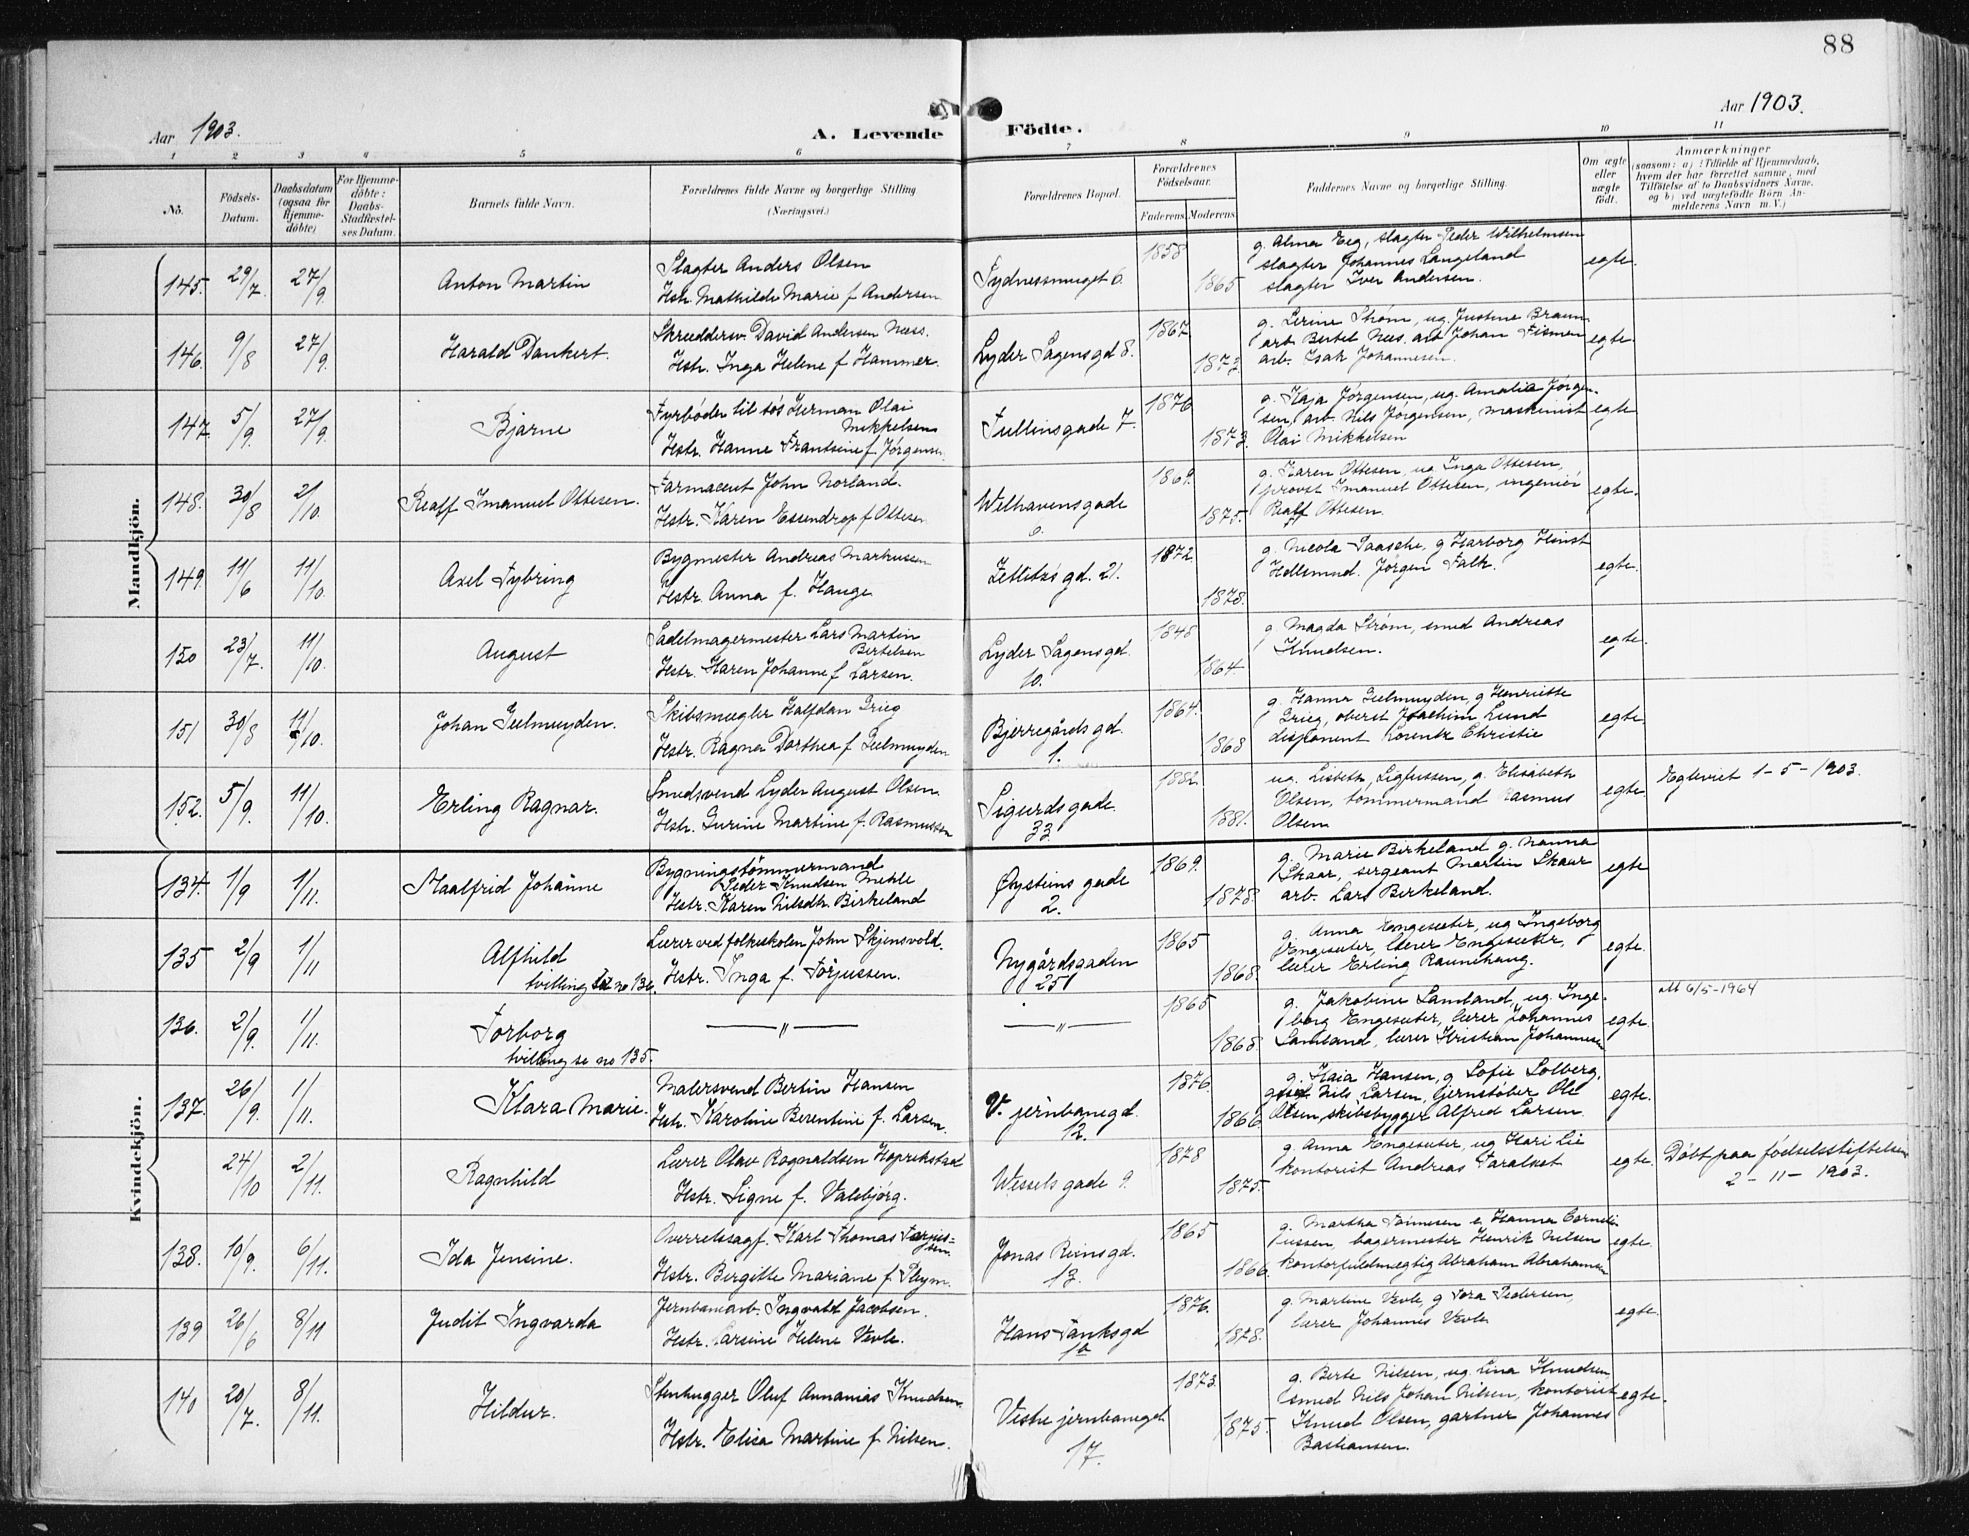 88
Aar 1903.
A. Levende Födte.
Aar 1903.
1 2 3 4 5 6 7 8 9 10 11
No.
Födsels-
Datum.
Daabsdatum
(ogsaa for
Hjemme-
döbte)
For Hjemme-
döbte:
Daabs-
Stadfæstel-
ses Datum.
Barnets fulde Navn.
Forældrenes fulde Navne og borgerlige Stilling.
(Næringsvei.)
Forældrenes Bopæl.
Forældrenes
Födselsaar.
Faderens Moderens
Faddernes Navne og borgerlige Stilling.
Om ægte
eller
uægte
födt.
Anmærkninger
(saasom: a) i Tilfælde af Hjemmedaab,
hvem der har forrettet samme, med
Tilföielse af to Daabsvidners Navne.
og b) ved uægtefödte Börn An-
melderens Navn m. V.)
Mandkjön.
145. 29/7. 27/9. Anton Martin
Slagter Anders Olsen
Hstr. Mathilde Marie f Andersen
Sydnessmuget 6.
1858 1865
g. Alma Eeg, slagter Peder Wilhelmsen
slagter Johannes Langeland
slagter Iver Andersen.
egte.
146. 9/8 27/9. Harald Dankert.
Skreddersv. David Andersen Næss.
Hstr. Inga Helene f Hammer.
Lyder Sagensgd 8.
1867 1872
g. Lerine Strøm, ug. Justine Braun
arb. Bertel Næs. arb Johan Fismen
arb. Isak Johannesen.
egte.
147. 5/9. 27/9. Bjarne
Fyrbøder til søs Herman Olai
Mikkelsen
Hstr. Hanne Frantsine f. Jørgensen.
Tullinsgade 7.
1876 1873.
g. Kaja Jørgensen, ug. Amalia Jørgen-
sen, arb. Nils Jørgensen, maskinist
Olai Mikkelsen
egte
148. 30/8 2/10. Realf Imanuel Ottesen.
Farmaceut John Norland.
Hstr. Karen Essendrop f Ottesen
Welhavensgade
1869. 1875.
g. Karen Ottesen, ug Inga Ottesen,
provst Imanuel Ottesen, ingeniør
Realf Ottesen.
egte.
149. 11/6 11/10. Axel Fybring
Bygmester Andreas Markussen
Hstr. Anna f. Hauge
Zetlitzs gd. 21.
1872 1878.
g. Nicola Paasche, g Harborg Hinst
Hellsmud. Jørgen Falk.
egte.
150 23/7. 11/10. August
Sadelmagermester Lars Martin
Bertelsen
Hstr. Karen Johanne f Larsen.
Lyder Sagensgd.
10.
1848 1864
g. Magda Strøm, smed Andreas
Knudsen.
egte.
151 30/8 11/10. Johan Geelmuyden.
Skibsmægler Halfdan Grieg
Hstr. Ragna Dorthea f Geelmuyden
Bjerregårds gd.
1.
1864. 1868
g. Hanna Geelmuyden, g Henriette
Grieg, oberst Joachim Lund
disponent Lorentz Christie
egte
152. 5/9. 11/10. Erling Ragnar.
Smedsvend Lyder August Olsen
Hstr. Gurine Martine f. Rasmussen
Sigurdsgade.
33
1882 1881.
ug. Lisbeth Sigfussen, g. Elisabeth
Olsen, tømmermand Rasmus
Olsen
egte.
Egteviet 1-5-1903.
Kvindekjön.
134. 1/9 1/11. Maalfrid Johanne
Bygningstømmermand
Peder Knudsen Mehle
Hstr. Karen Nilsdtr. Birkeland
Øysteins gade
2.
1869. 1878.
g. Marie Birkeland g. Nanna
Skaar, sergeant Martin Skaar
arb. Lars Birkeland.
egte
135 2/9 1/11 Alfhild
tvilling se no 136.
Lærer ved folkeskolen John Skjensvold.
Hstr. Inga f. Torjussen.
Nygårdsgaden
25
1865 1868.
g. Anna Engesæter, ug Ingeborg
Engesæter, lærer Engesæter,
lærer Erling Raunehaug.
egte.
136. 2/9. 1/11. Torborg
tvilling se no 135.
— " —
— " —
1865 1868.
g. Jakobine Samland, ug. Inge-
borg Engesæter, lærer Johannes
Samland, lærer Kristian Johannesen
egte.
att 6/5-1964
137. 26/9. 1/11. Klara Marie.
Malersvend Bertin Hansen
Hstr. Karoline Berentine f. Larsen.
V. jernbanegd.
12.
1876. 1866
g. Kaia Hansen, g Sofie Solberg,
Nils Larsen, Gjernstøber Ole
Olsen, skibsbygger Alfred Larsen
egte.
24/10 2/11. Ragnhild
Lærer Olav Ragnaldsen Hoprekstad
Hstr. Signe f. Valsbjørg.
Wessels gade 9.
1878 1875.
g. Anna Engesæter, ug Kari Lie
kontorist Andreas Faralset
egte.
Døbt paa fødselsstiftelsen
2-11-1903.
138. 10/9. 6/11. Ida Jensine.
Overretssagf. Karl Thomas Torjus-
sen.
Hstr. Bergitte Mariane f. Pleym.
Jonas Reinsgd.
13.
1865 1866.
g. Martha Tønnesen e Hanna Corneli-
ussen, bagermester Henrik Nilsen
kontorfuldmægtig Abraham Abrahamsen
egte.
139 26/6 8/11 Judit Ingvarda
Jernbanearb. Ingvald Jacobsen.
Hstr. Larsine Helene Vevle.
Hans Tanksgd
1b
1876. 1878.
g. Martine Vevle, g Tora Pedersen
lærer Johannes Vevle
egte.
140 20/7. 8/11. Hildur.
Stenhugger Oluf Annanias Knudsen.
Hstr. Elisa Martine f. Nilsen.
Vestre jernbanegd
17.
1873. 1875.
g. Berte Nilsen, ug. Lina Knudsen,
smed Nils Johan Nilsen, kontorist
Knud Olsen, gartner Johannes
Bastiansen.
egte.